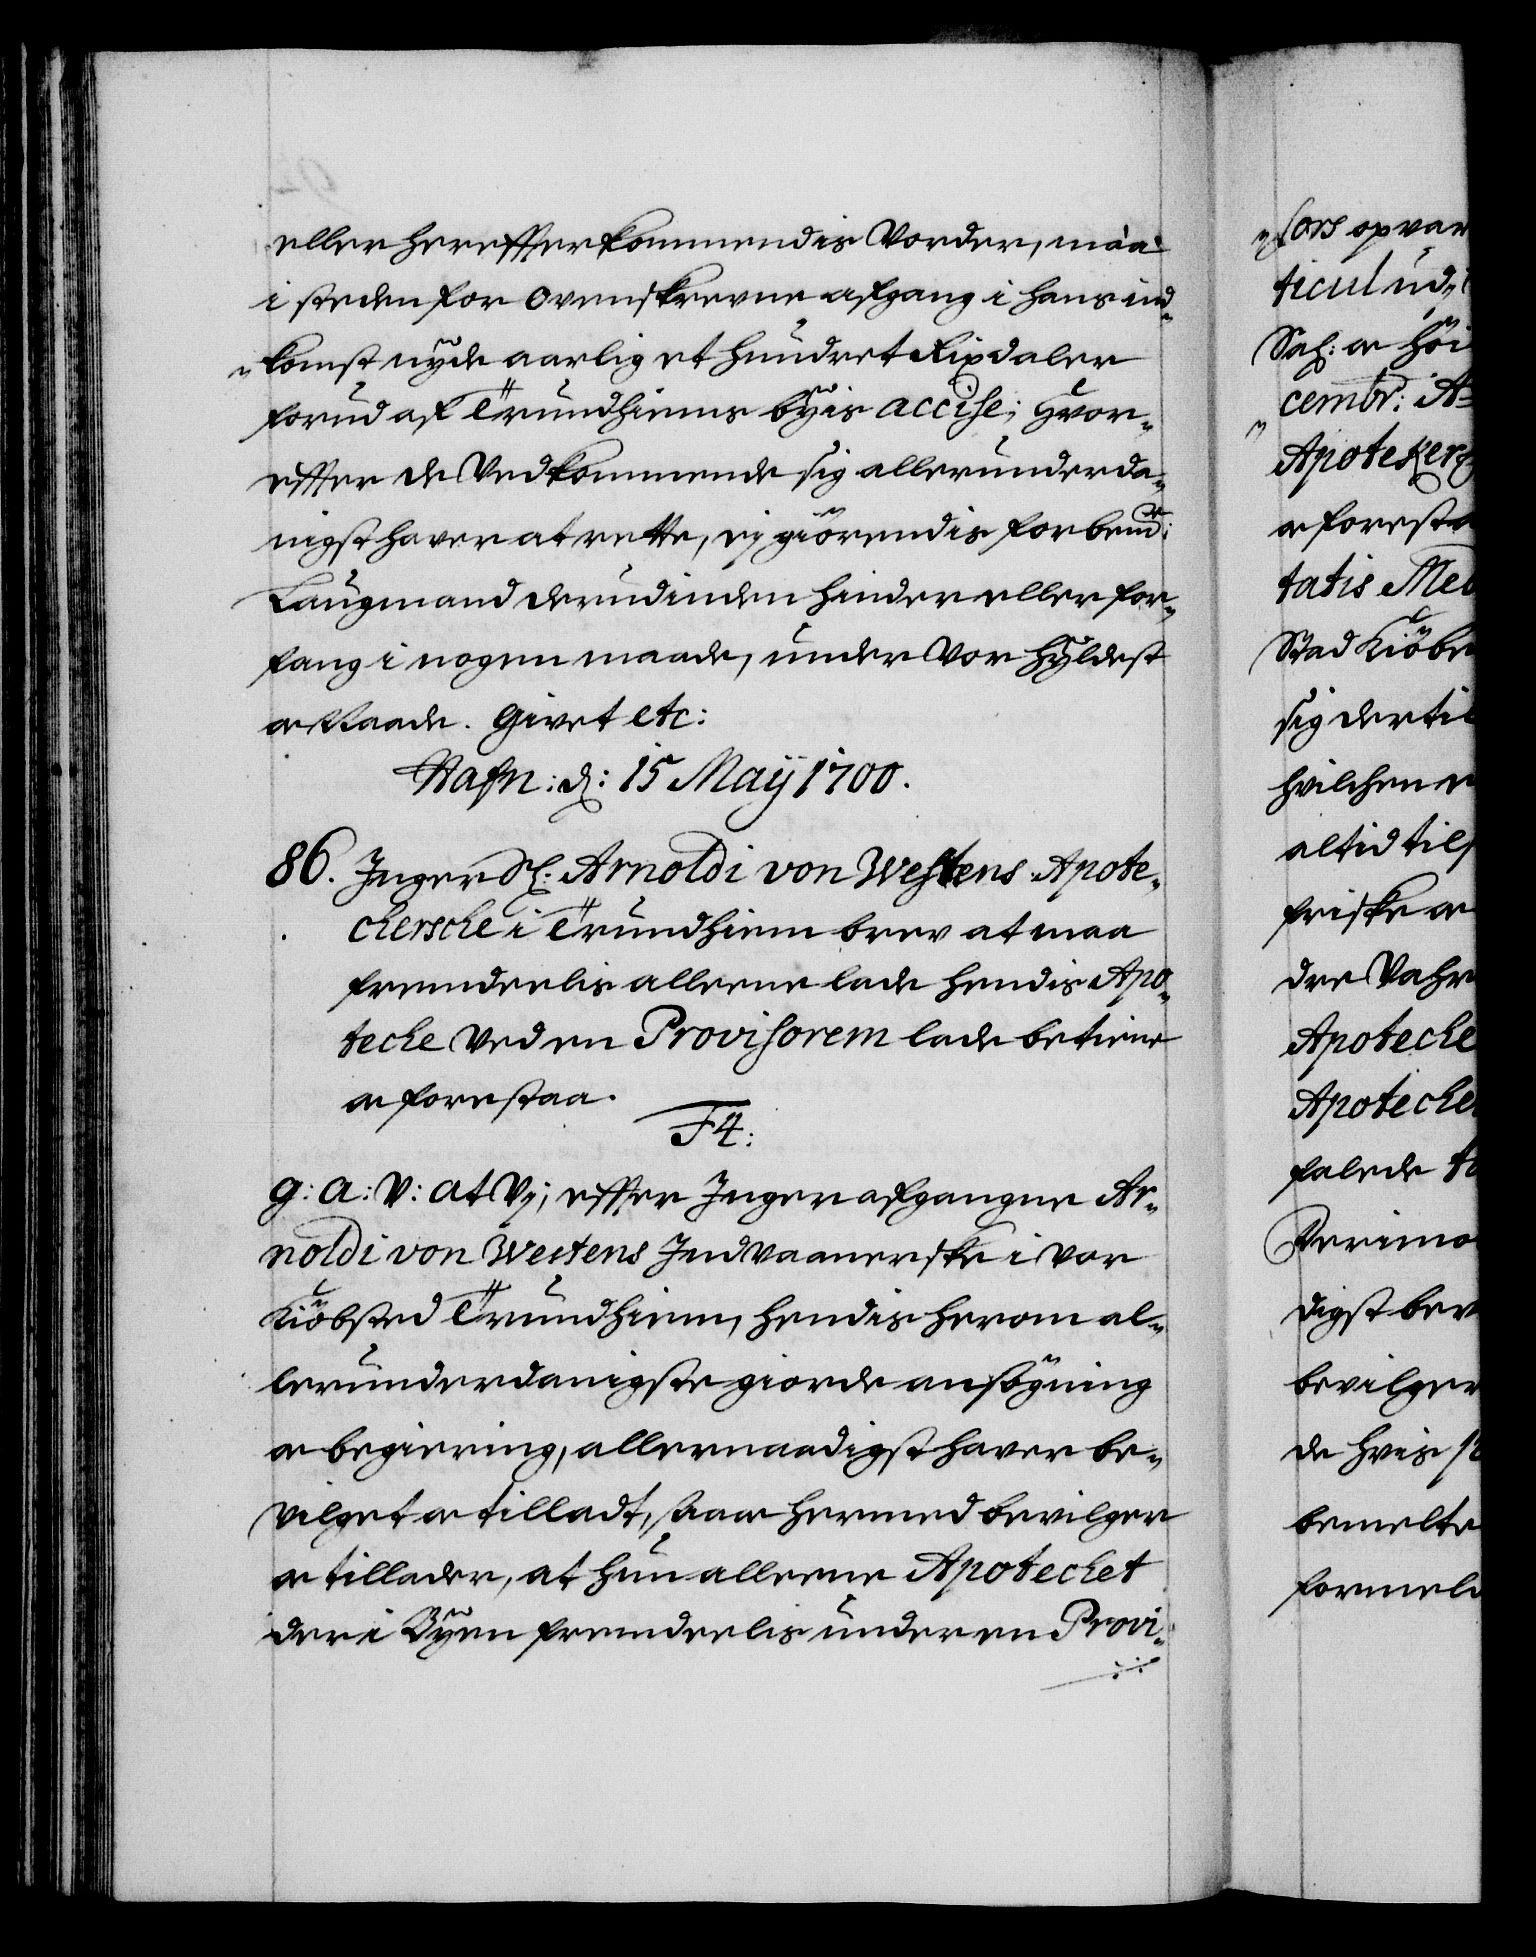 eller herefter kommendis Vorder, maa
i steden for ovenskrevne afgang i hans ind„
„komst nyde aarlig et hundret Rixdaler
forud af Trundhiems byis accise; Hvor„
efter de Vedkommende sig allerunderda„
nigst haver at rette, ej giörendis forbemte:
Laugmand derudinden hinder eller for„
fang i nogen maade, under Vor Hyldest
og Naade. Givet etc:
Hafn: d: 15 Maÿ 1700.
86. Inger Sl: Arnoldi von Westens Apote„
chersche i Trundhiem brev at maa
fremdeelis alleene lade hendis Apo„
teche Ved en Provisorem lade betiene
og forestaa.
F4:
G: A: V: at Vj, efter Inger afgangne Ar„
noldi von Westens Indvaanerske i vor
Kiöbsted Trundhiem, hendis herom al„
lerunderdanigste giorde ansögning
og begiering, allernaadigst haver be„
vilget og tilladt, saa og hermed bevilger
og tillader, at hun alleene Apotechet
der i Byen fremdeelis under en Provi„
„sors opvar
ticul ud„
Sal: og Höi
cembr: A
Apoteker
og foresta
tatis Med
Stad Kiöbe
sig dertil
hvilchen
altid til
friske og
dre Vahr
Apoteche
Apoteche
falede
Perimo
digst bev
bevilger
de hvis
bemelte
formel